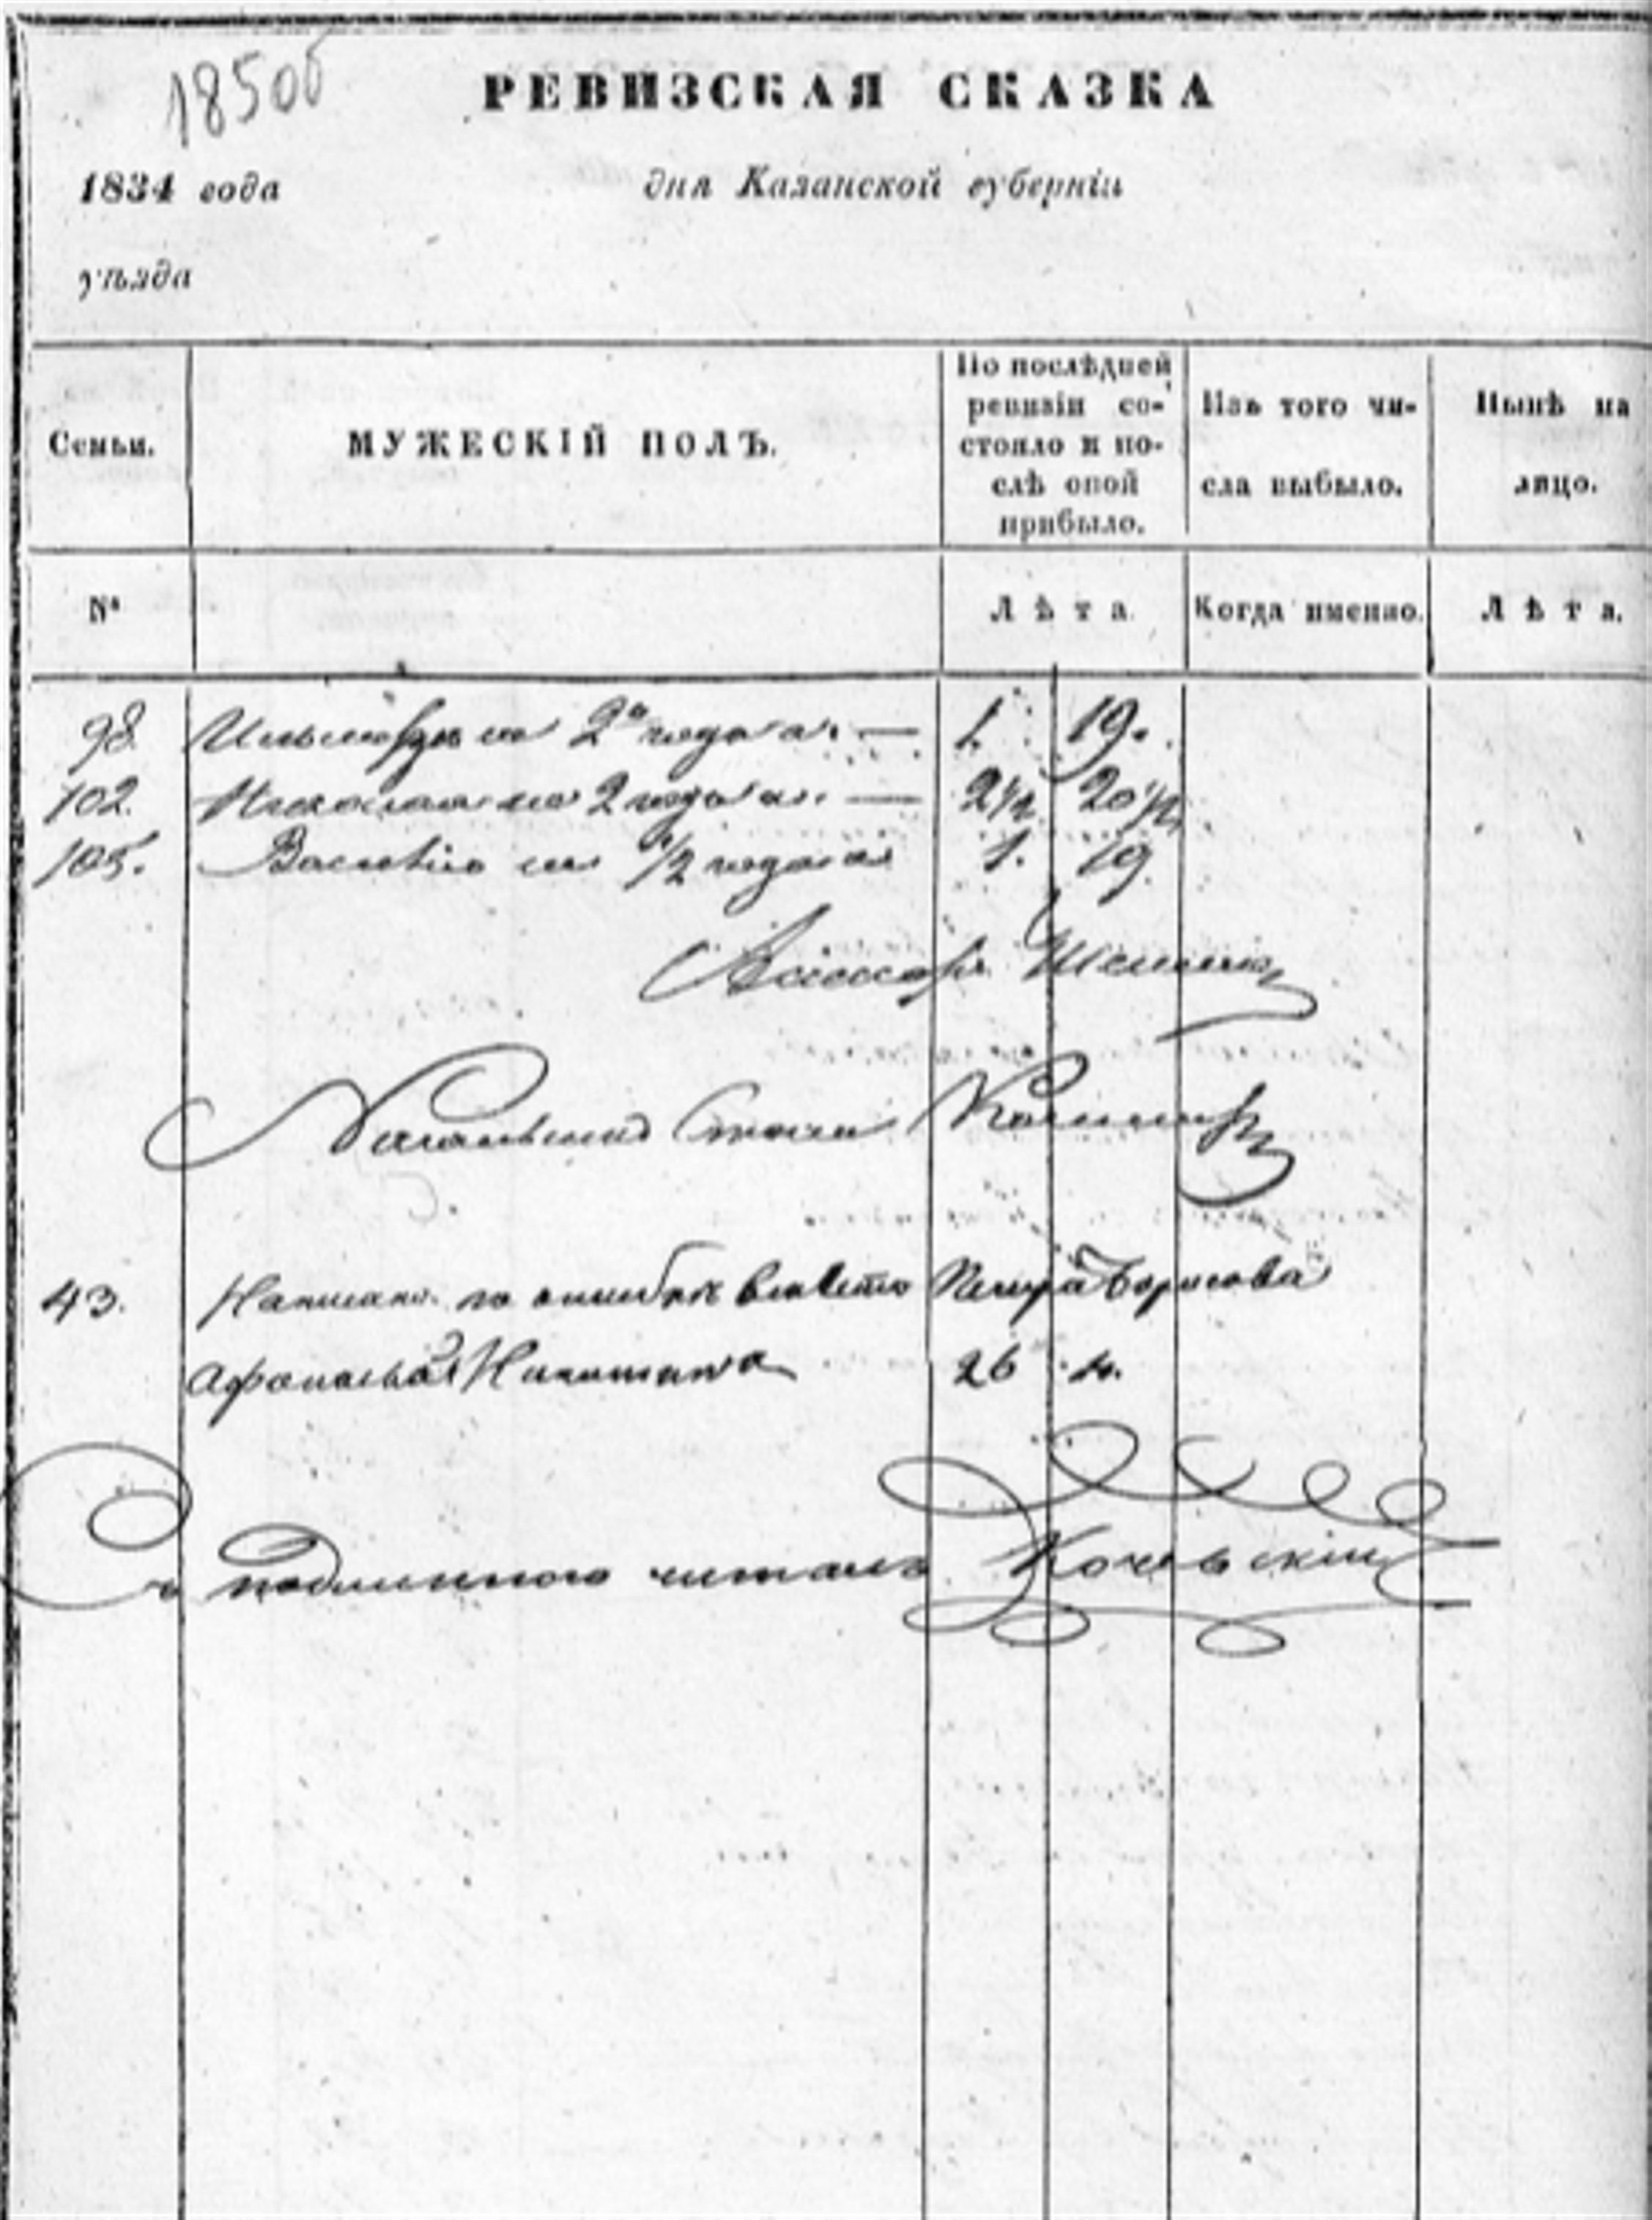 1850б
РЕВИЗСКАЯ СКАЗКА
1834 года дня Казанской губерніи
уѣзда
Семьи. МУЖЕСКІЙ ПОЛЪ. По послѣдней ревизіи состояло и послѣ оной прибыло. Изъ того числа выбыло. Нынѣ на лицо.
№ Лѣта. Когда именно. Лѣта.
98. 2го года — 1. 19.
102. 2 года — 2 1/2 20 1/2
105. Василію 1/2 года 1. 19.
Ассесоръ
Начальникъ Стола
43. Написано по ошибкѣ вмѣсто Петра Борисова
Афонасья Никитина 26 л.
Съ подлиннаго читалъ